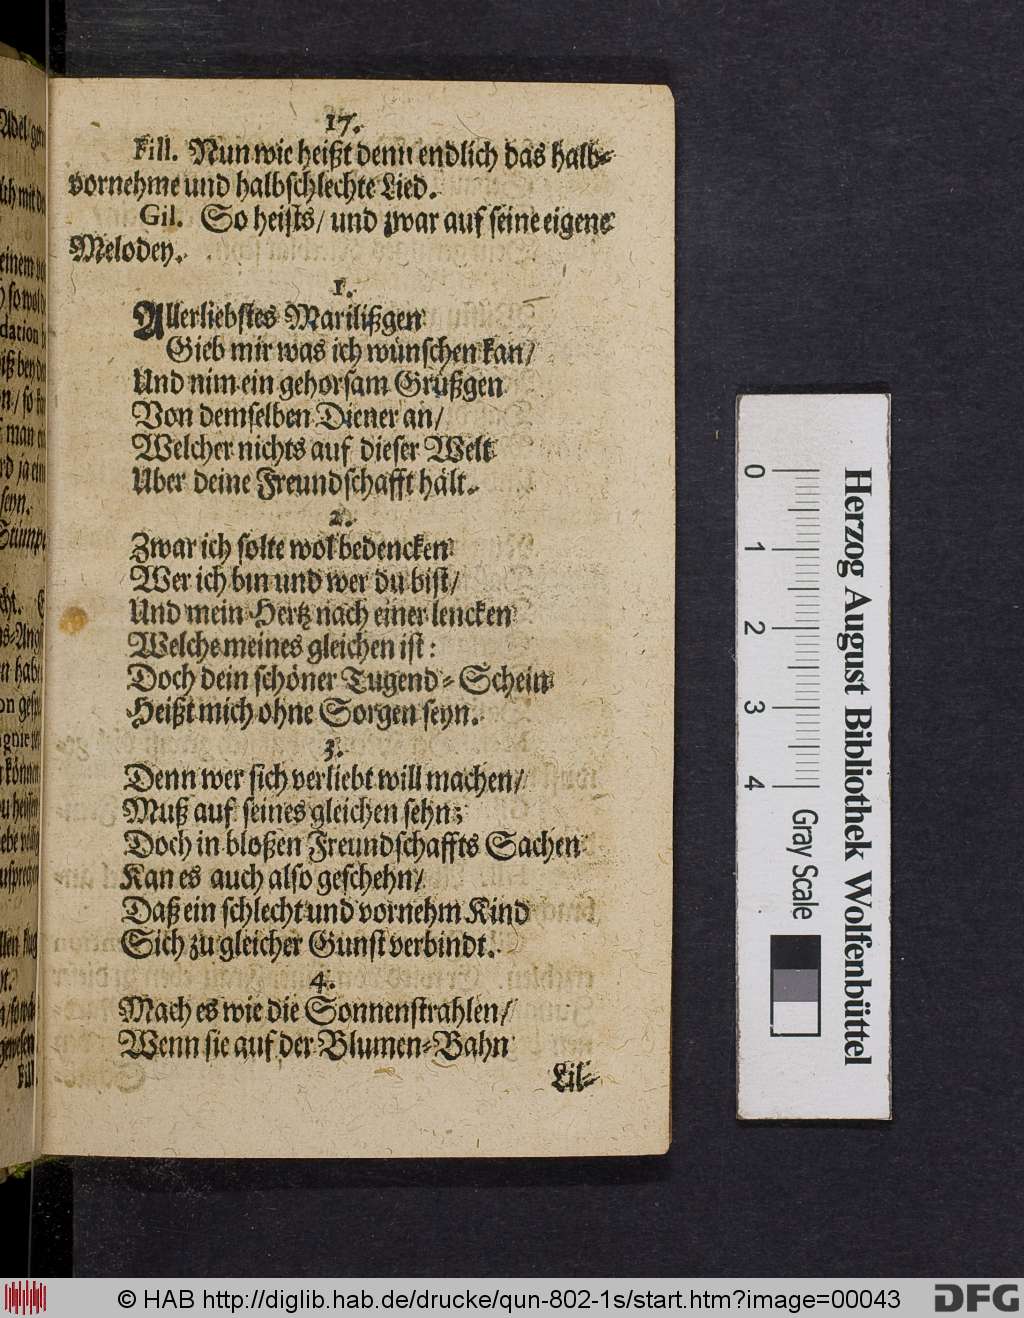 17.
Fill. Nun wie heißt denn endlich das halb-
vornehme und halbschlechte Lied.
Gil. So heists/ und zwar auf seine eigene
Melodey.
1.
Allerliebstes Marilißgen
Gieb mir was ich wünschen kan/
Und nim ein gehorsam Grüßgen
Von demselben Diener an/
Welcher nichts auf dieser Welt
Uber deine Freundschafft hält.
2.
Zwar ich solte wol bedencken
Wer ich bin und wer du bist/
Und mein Hertz nach einer lencken
Welche meines gleichen ist:
Doch dein schöner Tugend-Schein
Heißt mich ohne Sorgen seyn.
3.
Denn wer sich verliebt will machen/
Muß auf seines gleichen sehn;
Doch in bloßen Freundschaffts Sachen
Kan es auch also geschehn/
Daß ein schlecht und vornehm Kind
Sich zu gleicher Gunst verbindt.
4.
Mach es wie die Sonnenstrahlen/
Wenn sie auf der Blumen-Bahn
Lil-
0 1 2 3 4
Gray Scale
Herzog August Bibliothek Wolfenbüttel
© HAB http://diglib.hab.de/drucke/qun-802-1s/start.htm?image=00043
DFG